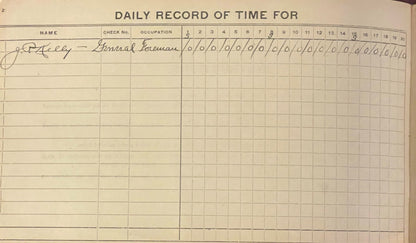 DAILY RECORD OF TIME FOR
NAME CHECK No. OCCUPATION 1 2 3 4 5 6 7 8 9 10 11 12 13 14 15 16 17 18 19 20
Kelly — General Foreman / 0 / 0 / 0 / 0 / 0 / 0 / 0 / 0 / 0 / 0 / 0 / 0 / 0 / 0 / 0 / 0 / 0 / 0 / 0